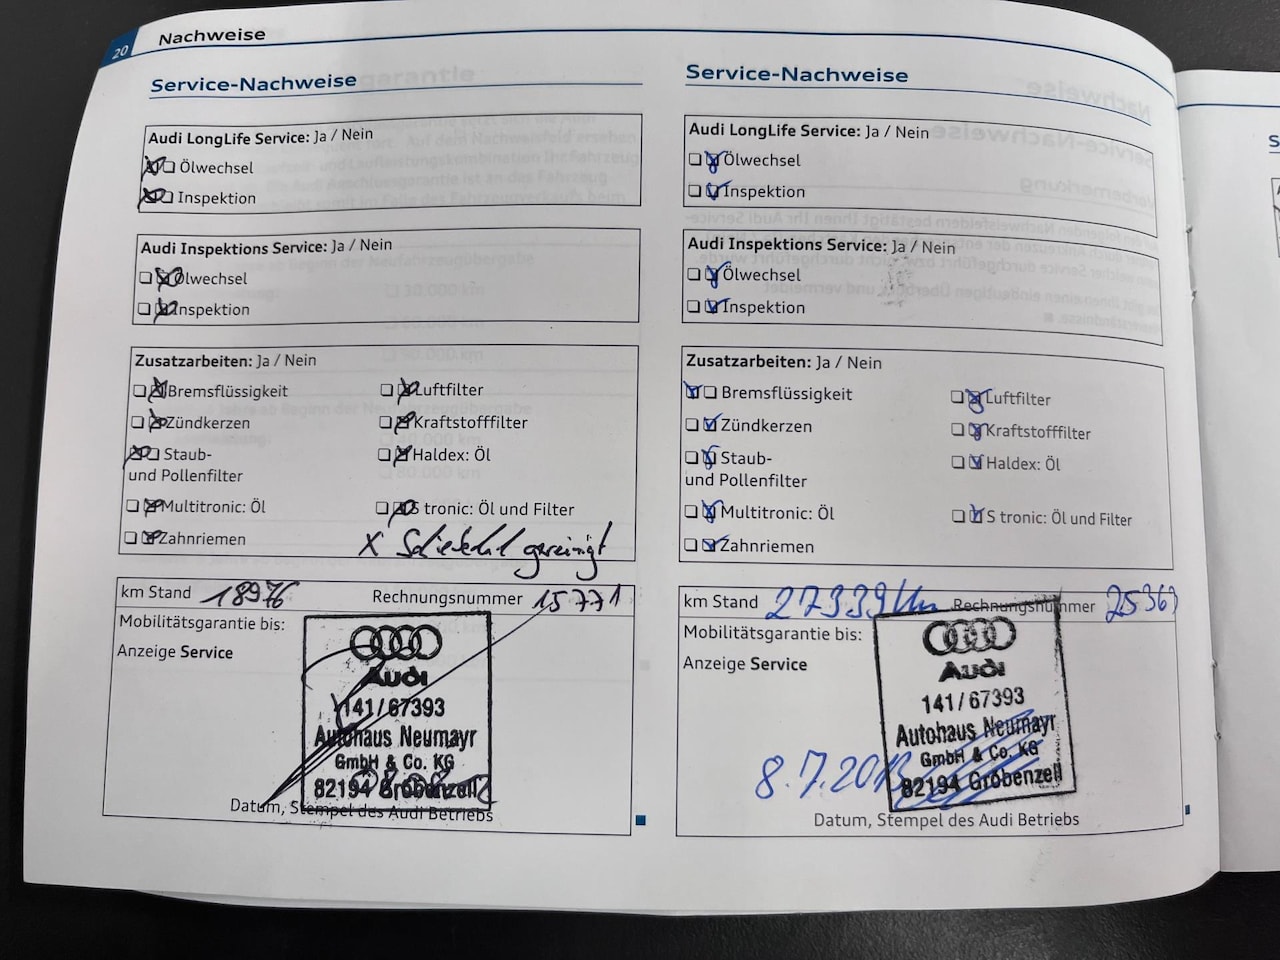 20 Nachweise
Service-Nachweise
Audi LongLife Service: Ja / Nein
Ölwechsel
Inspektion
Audi Inspektions Service: Ja / Nein
Ölwechsel
Inspektion
Zusatzarbeiten: Ja / Nein
Bremsflüssigkeit Luftfilter
Zündkerzen Kraftstofffilter
Staub- Haldex: Öl
und Pollenfilter
Multitronic: Öl S tronic: Öl und Filter
Zahnriemen
X gereinigt
km Stand 18976 Rechnungsnummer 15771
Mobilitätsgarantie bis:
Anzeige Service
Audi
141/67393
Autohaus Neumayr
GmbH & Co. KG
82194 Gröbenzell
Datum, Stempel des Audi Betriebs
Service-Nachweise
Audi LongLife Service: Ja / Nein
Ölwechsel
Inspektion
Audi Inspektions Service: Ja / Nein
Ölwechsel
Inspektion
Zusatzarbeiten: Ja / Nein
Bremsflüssigkeit Luftfilter
Zündkerzen Kraftstofffilter
Staub- Haldex: Öl
und Pollenfilter
Multitronic: Öl S tronic: Öl und Filter
Zahnriemen
km Stand 27339 km Rechnungsnummer 25369
Mobilitätsgarantie bis:
Anzeige Service
Audi
141/67393
Autohaus Neumayr
GmbH & Co. KG
82194 Gröbenzell
8.7.2013
Datum, Stempel des Audi Betriebs